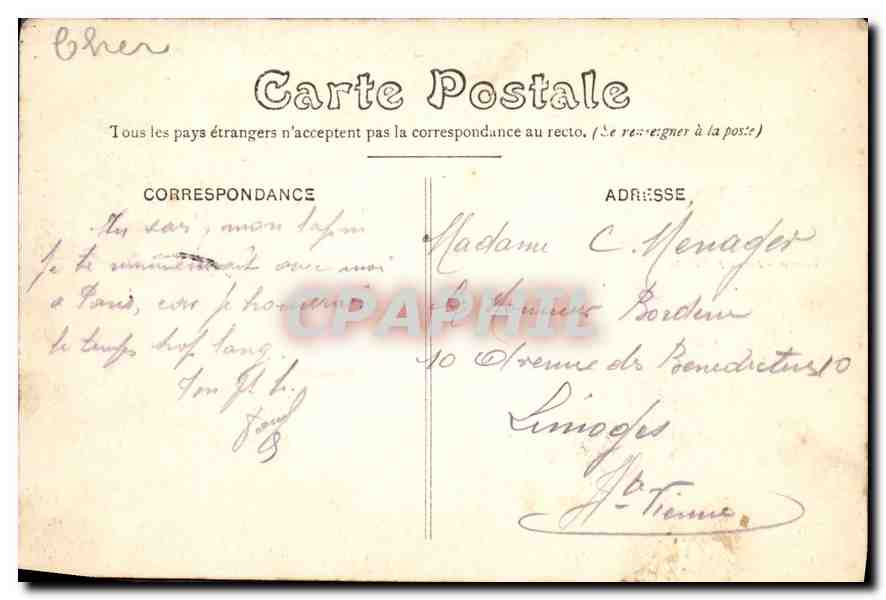 Cher
Carte Postale
Tous les pays étrangers n'acceptent pas la correspondance au recto. (Se renseigner à la poste)
CORRESPONDANCE
mon lapin
Je te avec moi
à Paris, car je
le temps trop long.
Ton
ADRESSE
Madame C. Menager
Borderie
10 Avenue des Bénédictins 10
Limoges
Hte Vienne
CPAPHIL